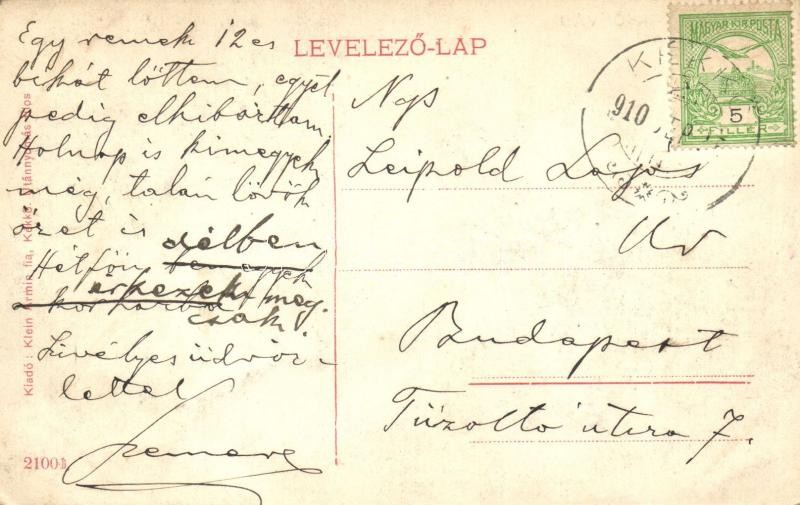 Egy remek 12es
bikát lőttem, egyet
pedig elhibáztam.
Holnap is kimegyek
még, talán lövök
őzet is
Hétfőn délben
érkezek meg.
csak
Szívélyes üdvöz-
lettel
Szemere
LEVELEZŐ-LAP
MAGYAR KIR. POSTA
5
FILLÉR
910
Ngs
Leipold Lajos
Úr
Budapest
Tűzoltó utca 7.
Kiadó: Klein Ármin fia, Kékkő.
2100